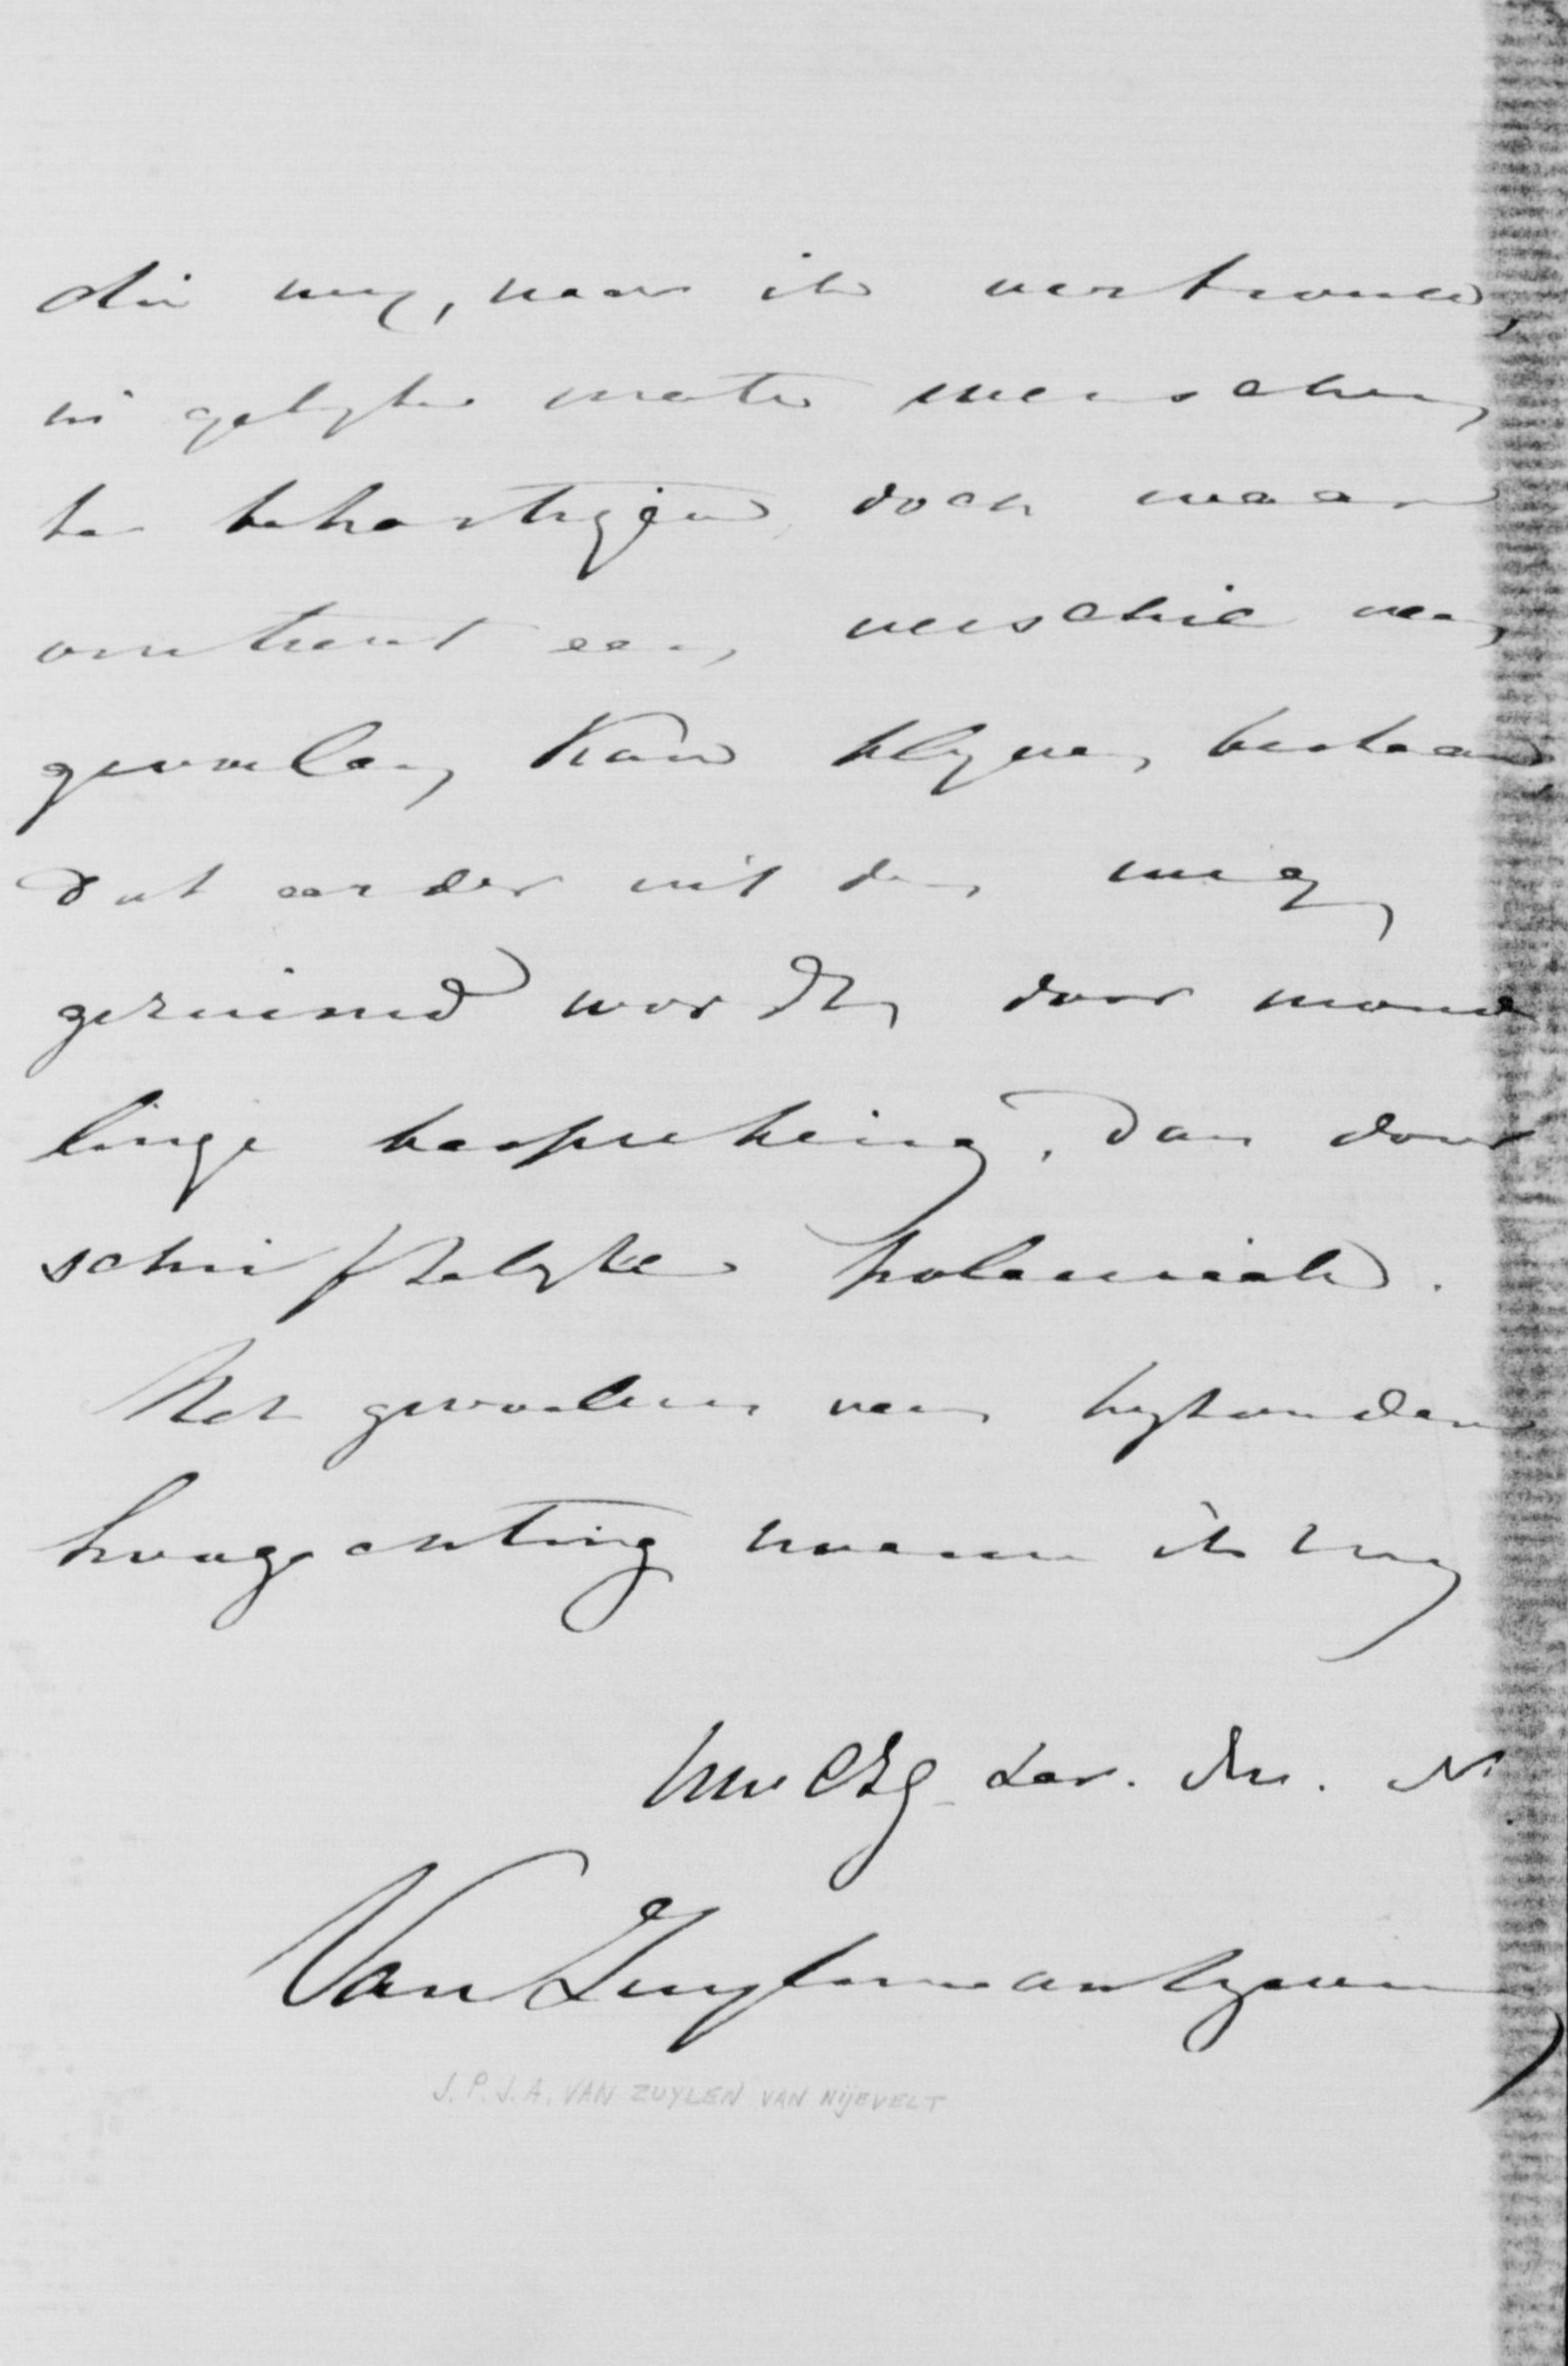 die wy, naar ik vertrouw,
in gelyke mate wenschen
te behartigen, doch waar
omtrent een verschil van
gevoelen kan blyven bestaan
dat eerder uit den weg
geruimd worden door monde
linge bespreking, dan door
schriftelyke polemiek.
Met gevoelens van byzondere
hoogachting noem ik my
UwEdg. dw. dr.
Van Zuylen van Nyevelt
J.P.J.A. VAN ZUYLEN VAN NIJEVELT